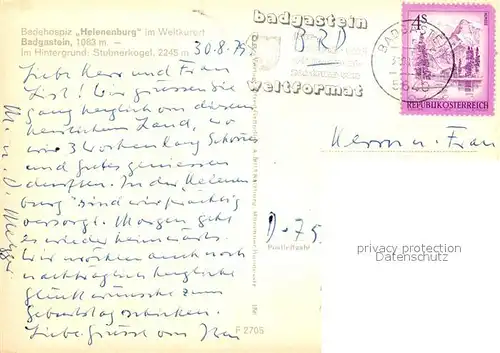 Badehospiz „Helenenburg" im Weltkurort
Badgastein, 1083 m. —
Im Hintergrund: Stubnerkogel, 2245 m
30.8.75
Liebe Herr und Frau
List! Wir grüssen Sie
ganz herzlich von diesem
herrlichen Land, wo
wir 3 Wochen lang Schönes
und Gutes geniessen
durften. In der Helenen
burg sind wir prächtig
versorgt. Morgen geht
es wieder heimwärts.
Wir möchten auch noch
nachträglich herzliche
Glückwünsche zum
Geburtstag schicken.
Liebe Grüsse von Ihren
M. u. D.
badgastein
BRD
weltformat
BADGASTEIN
5640
4S
REPUBLIK ÖSTERREICH
Herrn u. Frau
D-75
Postleitzahl
privacy protection
Datenschutz
F 2705